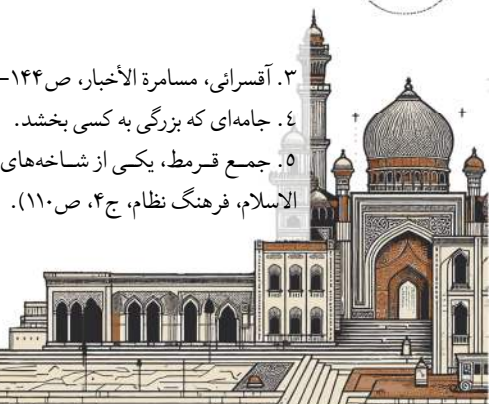 ۳. آقسرائی، مسامرة الأخبار، ص۱۴۴-
٤. جامه‌ای که بزرگی به کسی بخشد.
٥. جمــع قــرمط، یکــی از شــاخه‌های
الاسلام، فرهنگ نظام، ج۴، ص۱۱۰).